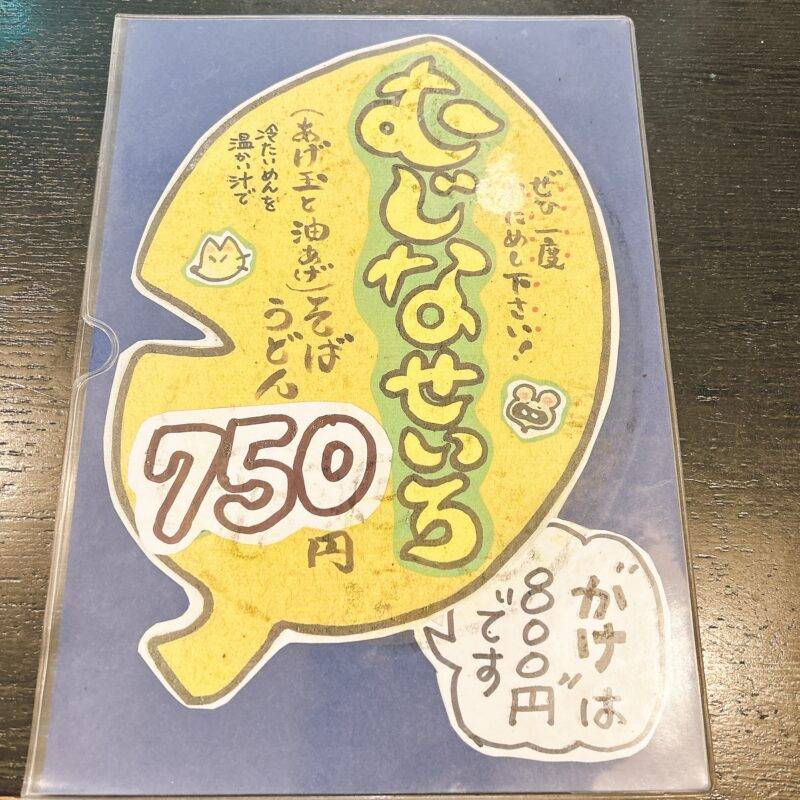 ぜひ一度
おためし下さい!
むじなせいろ
(あげ玉と油あげ)そば
うどん
冷たいめんを
温かい汁で
750円
"がけ"は
800円
です